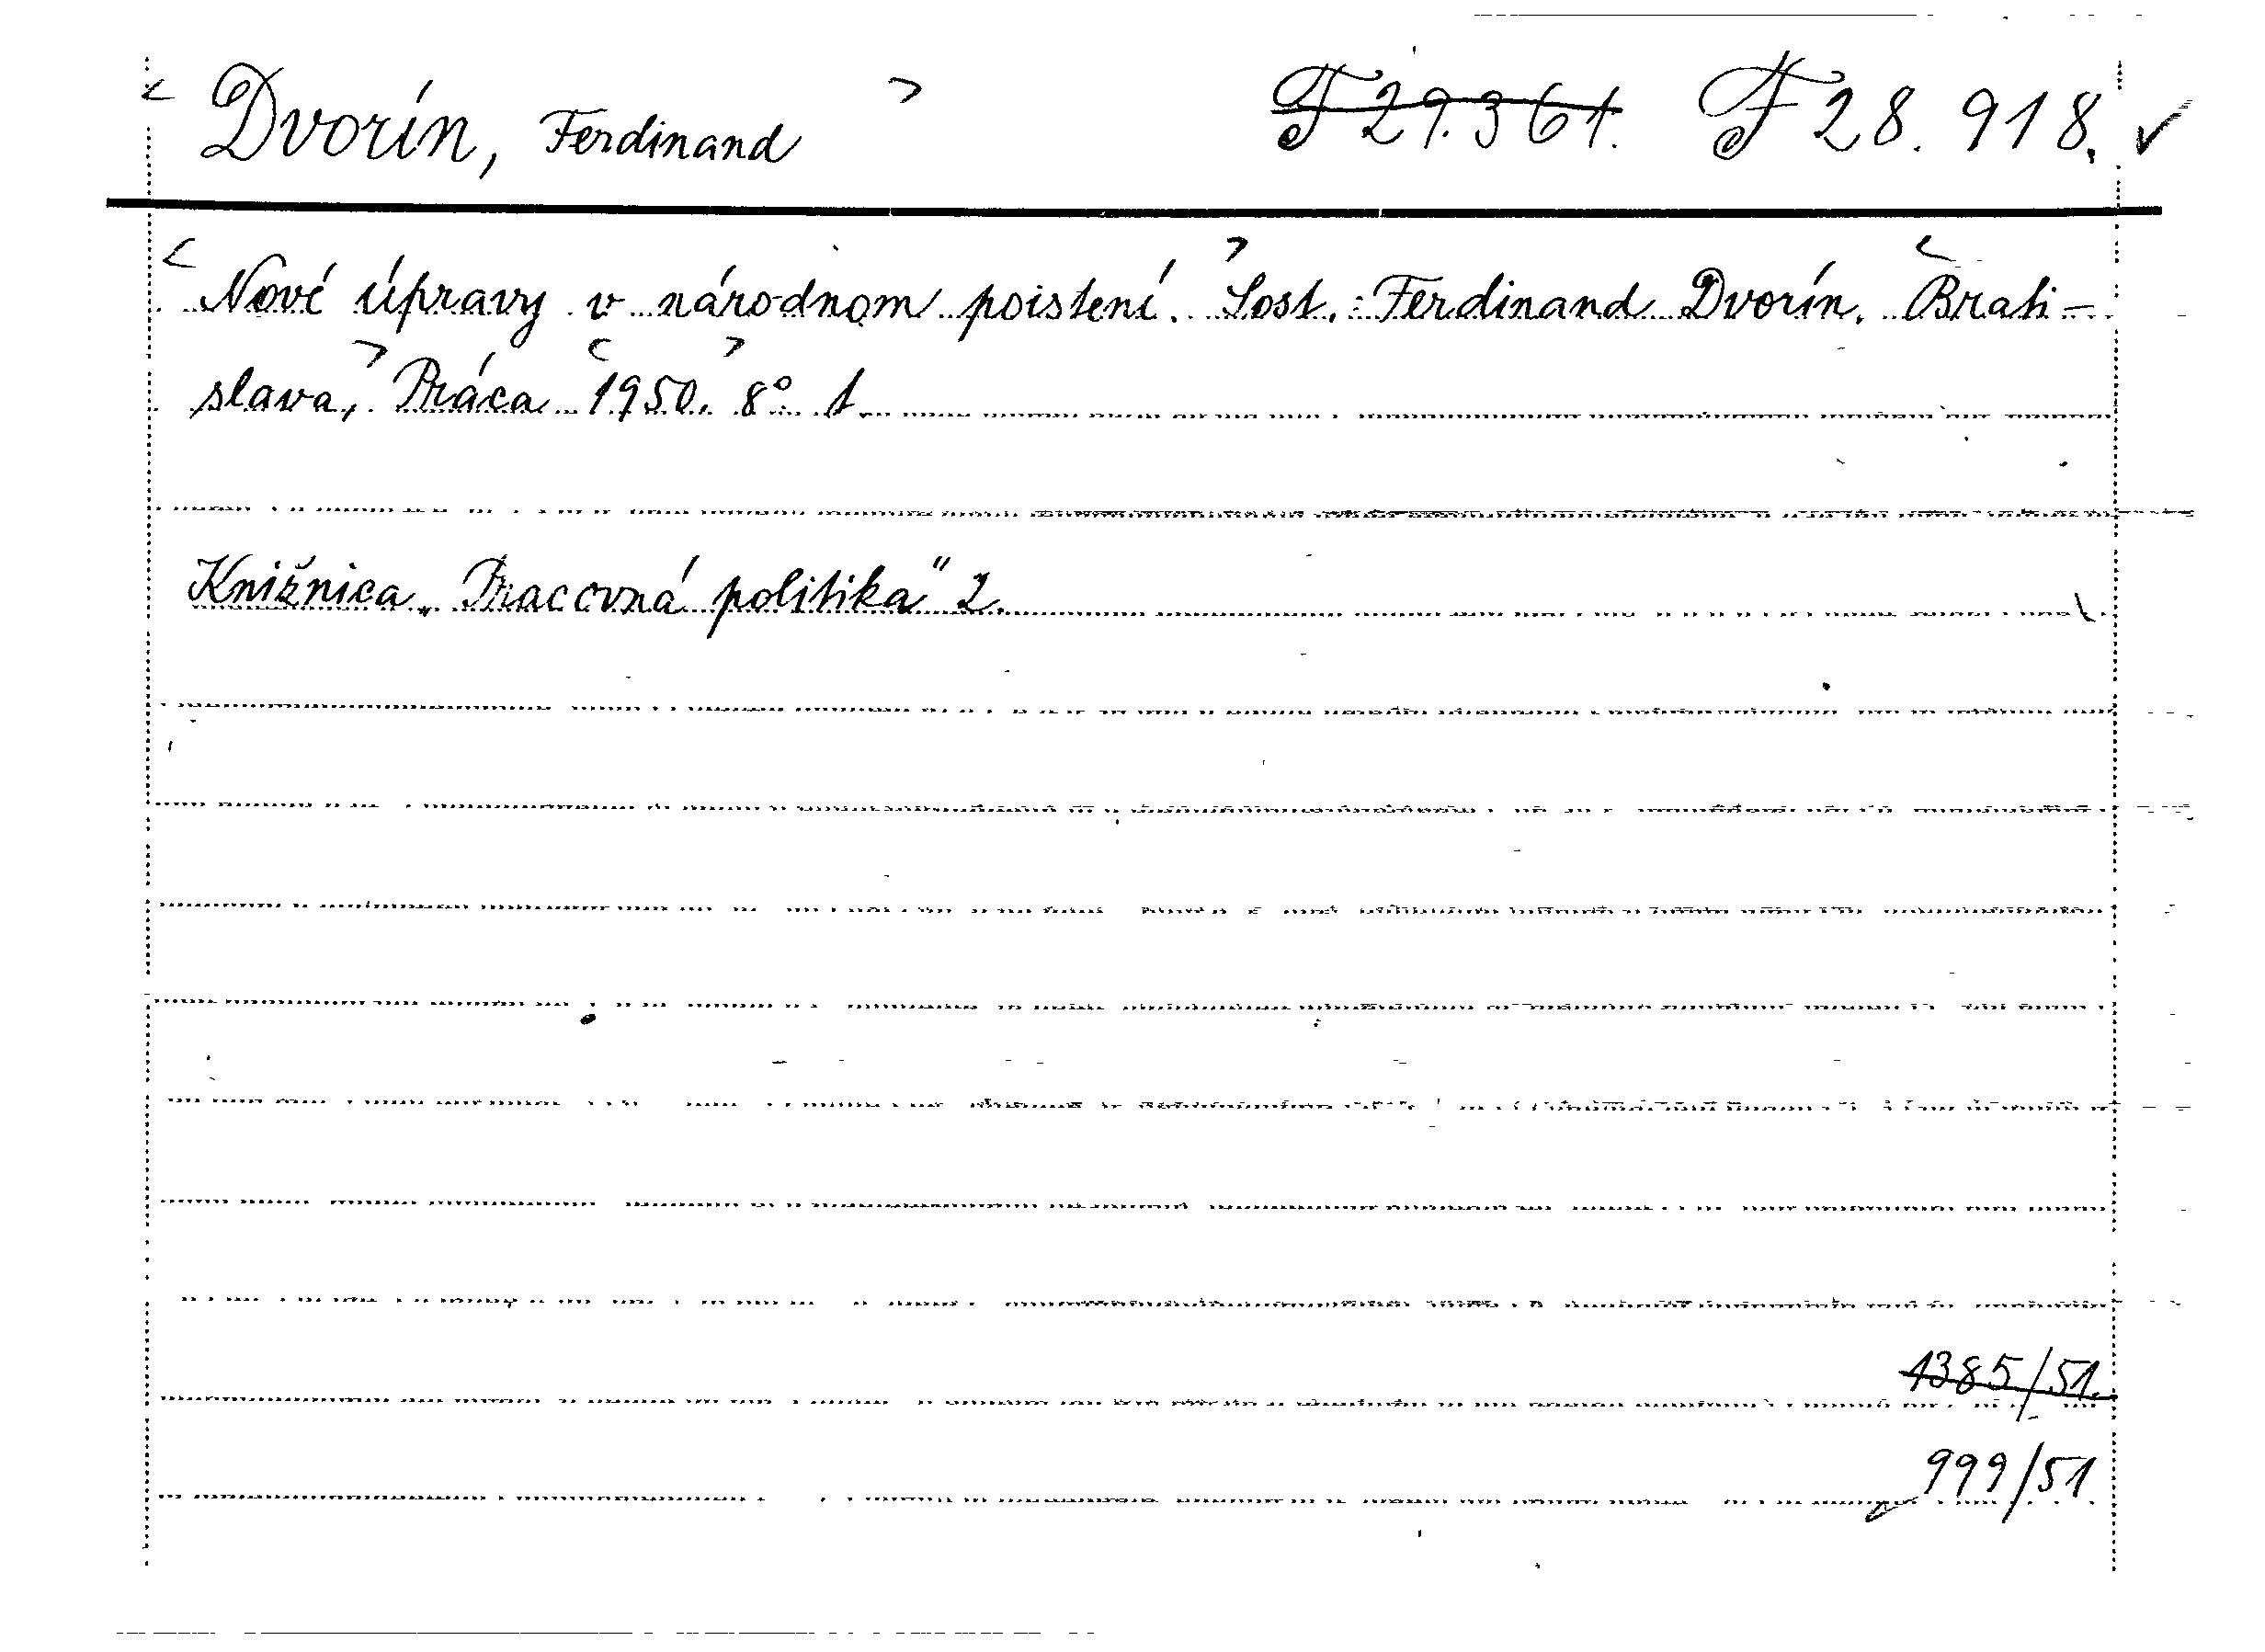 < Dvorín, Ferdinand > F 29.361. F 28.918. ✓
< Nové úpravy v národnom poistení. > Sost.: Ferdinand Dvorín. < Brati-
slava, > Práca < 1950. > 8° 1.
Knižnica „Pracovná politika" 2.
1385/51.
999/51